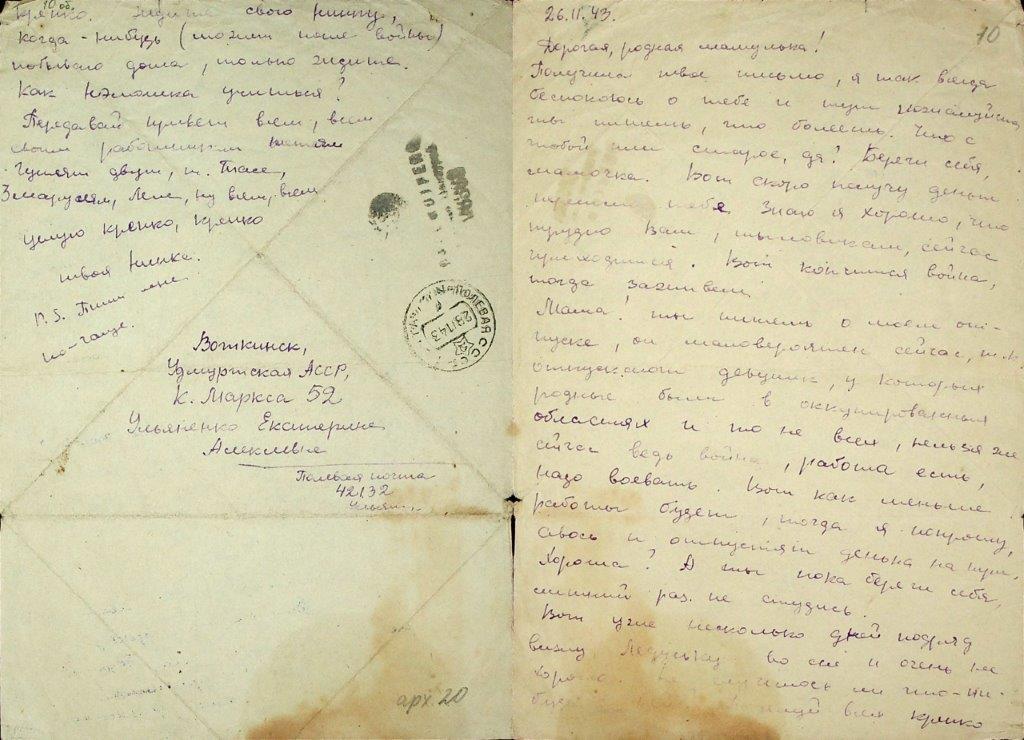 26.11.43.
10
Дорогая, родная мамулька!
Получила твое письмо, я так всегда
беспокоюсь о тебе и тут
ты пишешь, что болеешь. Что с
тобой или старое, да? Береги себя,
мамочка. Вот скоро получу деньги
тебе. Знаю я хорошо, что
трудно Вам, тыловикам, сейчас
приходится. Вот кончится война,
тогда заживем.
Мама! ты пишешь о моем от-
пуске, он маловероятен сейчас, т.к.
отпускают девушек, у которых
родные были в оккупированных
областях и то не всех, нельзя же
сейчас ведь война, работа есть,
надо воевать. Вот как меньше
работы будет, тогда я попрошу,
авось и отпустят денька на три.
Хорошо? А ты пока береги себя,
лишний раз не студись.
Вот уже несколько дней подряд
вижу во сне и очень не
хорошо. Не случилось ли что-ни-
будь всех крепко
10 об.
Крепко ждите свою Нинку,
когда-нибудь (может после войны)
побываю дома, только ждите.
Как учиться?
Передавай привет всем, всем
своим работницам
т. Тасе,
Лене, ну всем, всем
целую крепко, крепко
твоя Нинка.
P.S. Пиши мне
по-чаще.
ПОЛЕВАЯ
28 11 43
Воткинск,
Удмуртская АССР,
К. Маркса 52
Ульяненко Екатерине
Алексеевне
Полевая почта
42132
Ульян.
арх. 20